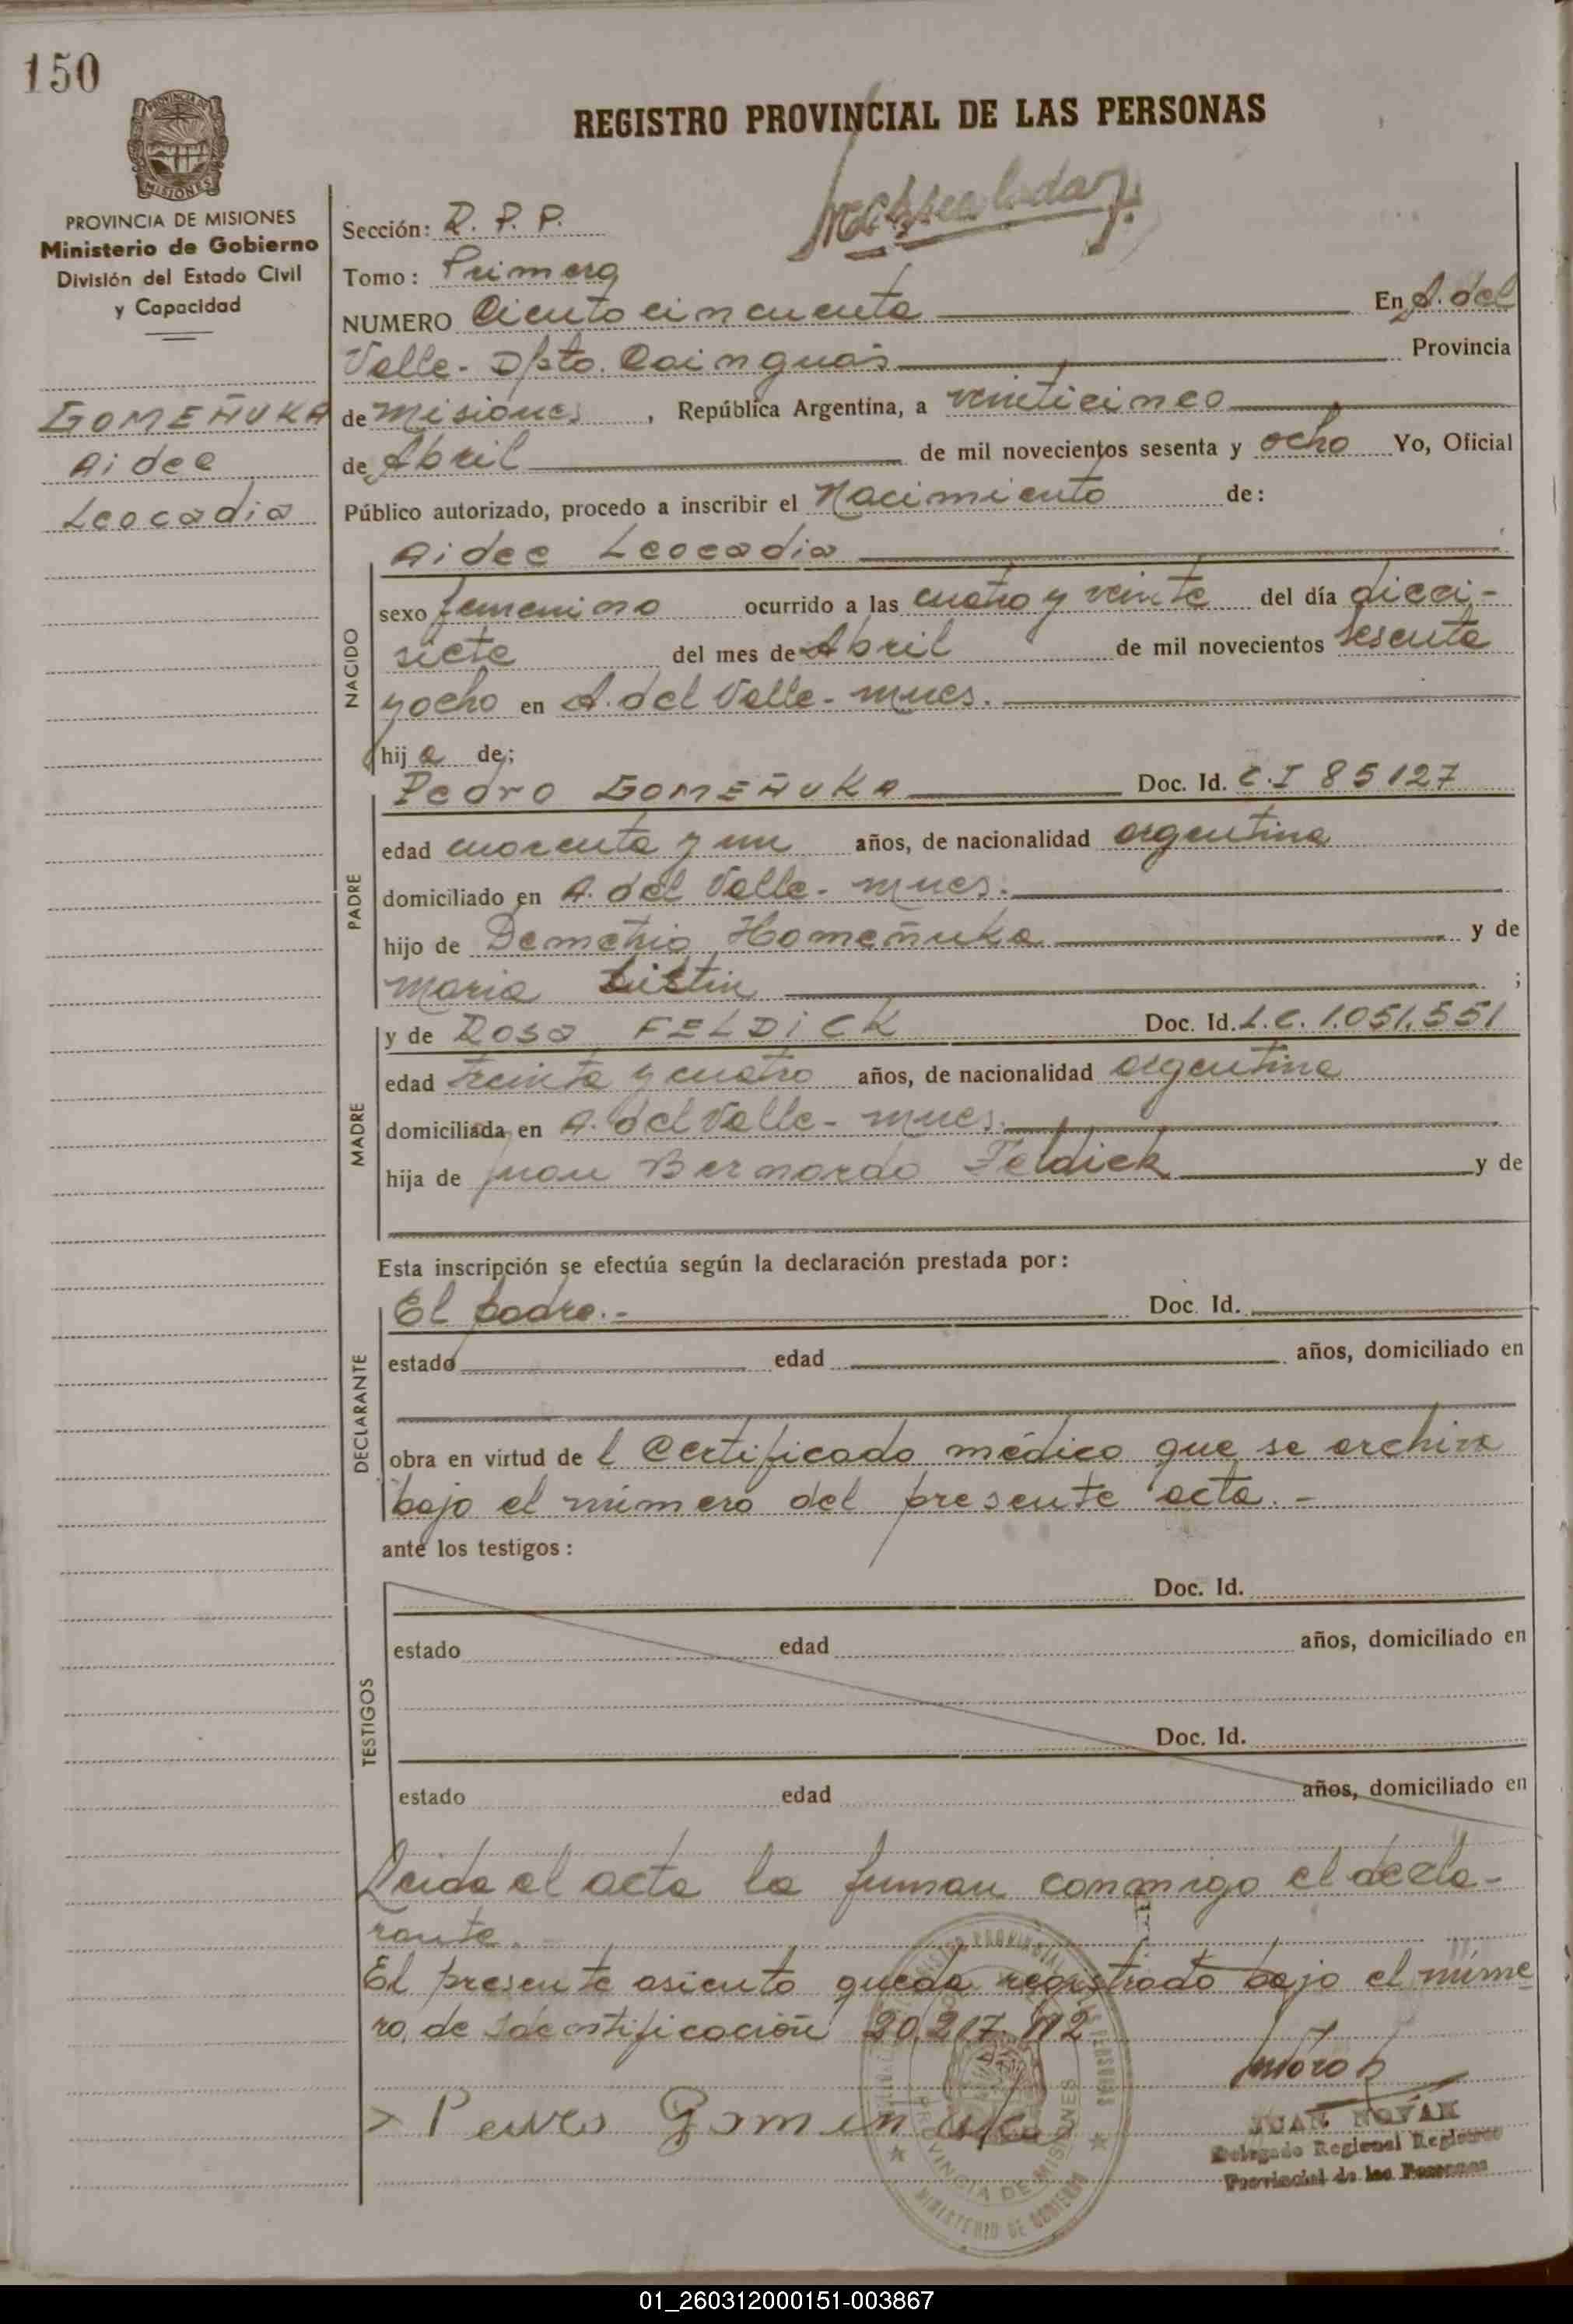 150
REGISTRO PROVINCIAL DE LAS PERSONAS
PROVINCIA DE MISIONES
Ministerio de Gobierno
División del Estado Civil
y Capacidad
GOMEÑUKA
Aidee
Leocadia
Sección: R. P. P.
Tomo: Primero
NUMERO Ciento cincuenta En A. del
Valle - Dpto. Cainguás Provincia
de Misiones, República Argentina, a veinticinco
de Abril de mil novecientos sesenta y ocho Yo, Oficial
Público autorizado, procedo a inscribir el Nacimiento de:
Aidee Leocadia
NACIDO
sexo femenino ocurrido a las cuatro y veinte del día dieci-
siete del mes de Abril de mil novecientos sesenta
y ocho en A. del Valle - Mnes.
hija de;
PADRE
Pedro GOMEÑUKA Doc. Id. C.I 85127
edad cuarenta y un años, de nacionalidad argentina
domiciliado en A. del Valle - Mnes.
hijo de Demetrio Homeñuka y de
Maria ;
MADRE
y de Rosa FELDICK Doc. Id. L.C. 1.051.551
edad treinta y cuatro años, de nacionalidad argentina
domiciliada en A. del Valle - Mnes.
hija de Juan Bernardo Feldick y de
Esta inscripción se efectúa según la declaración prestada por:
DECLARANTE
El padre.- Doc. Id.
estado edad años, domiciliado en
obra en virtud de l Certificado médico que se archiva
bajo el número del presente acta. -
ante los testigos:
TESTIGOS
Doc. Id.
estado edad años, domiciliado en
Doc. Id.
estado edad años, domiciliado en
Leida el acta la firman conmigo el decla-
rante.
El presente asiento queda registrado bajo el núme
ro de Identificación 20.217.112
Pedro Gomeñuka
JUAN NOVAK
Delegado Regional Registro
Provincial de las Personas
PROVINCIA DE MISIONES
MINISTERIO DE GOBIERNO
01_260312000151-003867